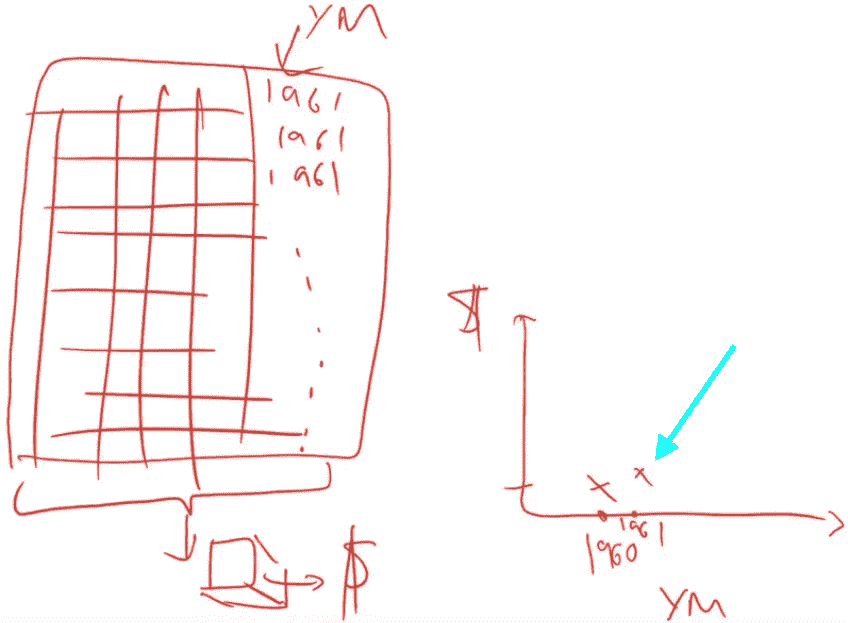 YM
1961
1961
1961
$
$
1960
1961
YM